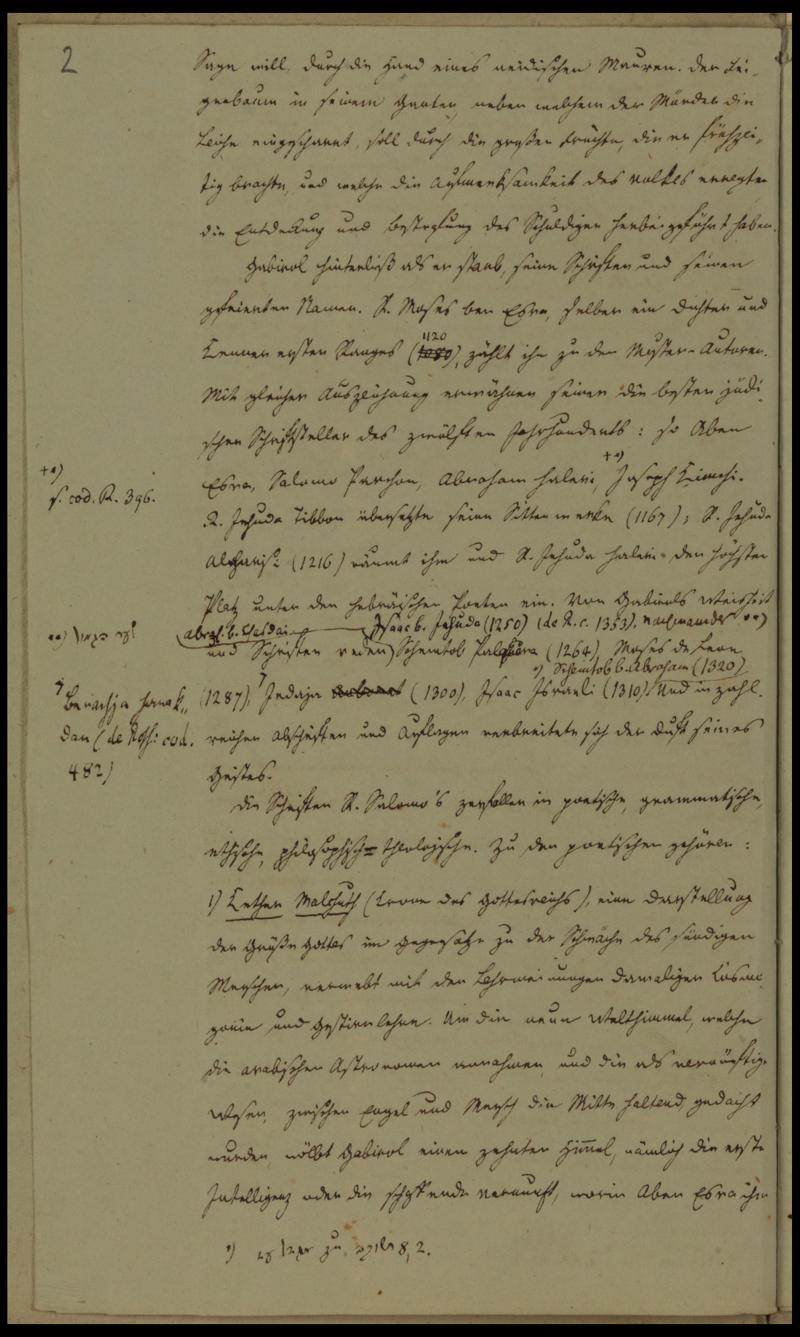 2
Sage will, durch die Hand eines neidischen Mauren. Der Fei-
genbaum in seinem Garten, neben welchem der Mörder die
Leiche eingescharrt, soll durch die großen Früchte, die er frühzei-
tig brachte, und welche die Aufmerksamkeit des Volkes erregten
die Entdeckung und Bestrafung des Schuldigen herbeigeführt haben.
Gabirol hinterließ als er starb, seine Schriften und seinen
gefeierten Namen. R. Moses ben Esra, selber ein Dichter und
Kenner ersten Ranges (1120), zählt ihn zu den Muster-Autoren.
Mit gleicher Auszeichnung erwähnen seiner die besten jüdi-
schen Schriftsteller des zwölften Jahrhunderts: so Aben
Esra, Salomo Parchon, Abraham Halevi, +*) Joseph Kimchi.
+*) s. cod. R. 396.
R. Jehuda Tibbon übersetzte seine Sittenwerke (1167); R. Jehuda
Alcharisi (1216) räumt ihm und R. Jehuda Halevi den höchsten
Platz unter den hebräischen Poeten ein. Von Gabirols Weisheit
Abrah. b. Chasdai Isaac b. Jehuda (1250) (de R. c. 1353). **)
und Schriften reden Schemtob Palquera (1264), Moses de Leon
*) Schemtob b. Abraham (1320)
(1287), Jedaja (1300), Isaac Israeli (1310). Und in zahl-
Berachja Hanak-
dan (de Rossi cod.
482)
reichen Abschriften und Auflagen verbreitete sich der Duft seines
Geistes.
Die Schriften R. Salomo's zerfallen in poetische, grammatische,
ethische, philosophisch-theologische. Zu den poetischen gehören:
1) Kether Malchuth (Krone des Gottesreichs), eine Darstellung
der Größe Gottes im Gegensatze zu der Schwäche des sündigen
Menschen, verwebt mit den Lehrmeinungen damaliger Kosmo-
gonie und Gestirnlehre. Um die neun Welthimmel, welche
die arabischen Astronomen annahmen, und die als vernünftige
Wesen, zwischen Engel und Mensch die Mitte haltend, gedacht
wurden, wölbt Gabirol einen zehnten Himmel, nämlich die erste
Intelligenz oder die schaffende Vernunft, worin Aben Esra ihm
*) zu 8, 2.